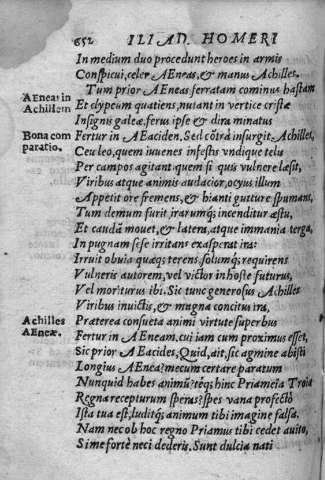 652 ILIAD. HOMERI
In medium duo procedunt heroes in armis
Conspicui, celer AEneas, & manus Achilles.
Tum prior AEneas ferratam cominus hastam
AEneas in
Achillem
Et clypeum quatiens, nutant in vertice cristæ
Insignis galeæ, ferus ipse & dira minatus
Bona com
paratio.
Fertur in AEaciden. Sed cōtrà insurgit Achilles,
Ceu leo, quem iuuenes infestis vndique telis
Per campos agitant: quem si quis vulnere læsit,
Viribus atque animis audacior, ocyus illum
Appetit ore fremens, & hianti gutture spumant,
Tum demum surit, irarumq; incenditur æstu,
Et caudā mouet, & latera, atque immania terga,
In pugnam sese irritans exasperat ira:
Irruit obuia quæq; terens, solumq; requirens
Vulneris autorem, vel victor in hoste futurus,
Vel moriturus ibi. Sic tunc generosus Achilles
Viribus inuictis, & magna concitus ira,
Achilles
AEneæ.
Præterea consueta animi virtute superbus
Fertur in AEneam. cui iam cum proximus esset,
Sic prior AEacides, Quid, ait, sic agmine abisti
Longius AEnea? mecum certare paratum
Nunquid habes animū? tēq; hinc Priameia Troia
Regna recepturum speras? spes vana profectō
Ista tua est, luditq; animum tibi imagine falsa.
Nam nec ob hoc regno Priamus tibi cedet auito,
Si me forte neci dederis. Sunt dulcia nati